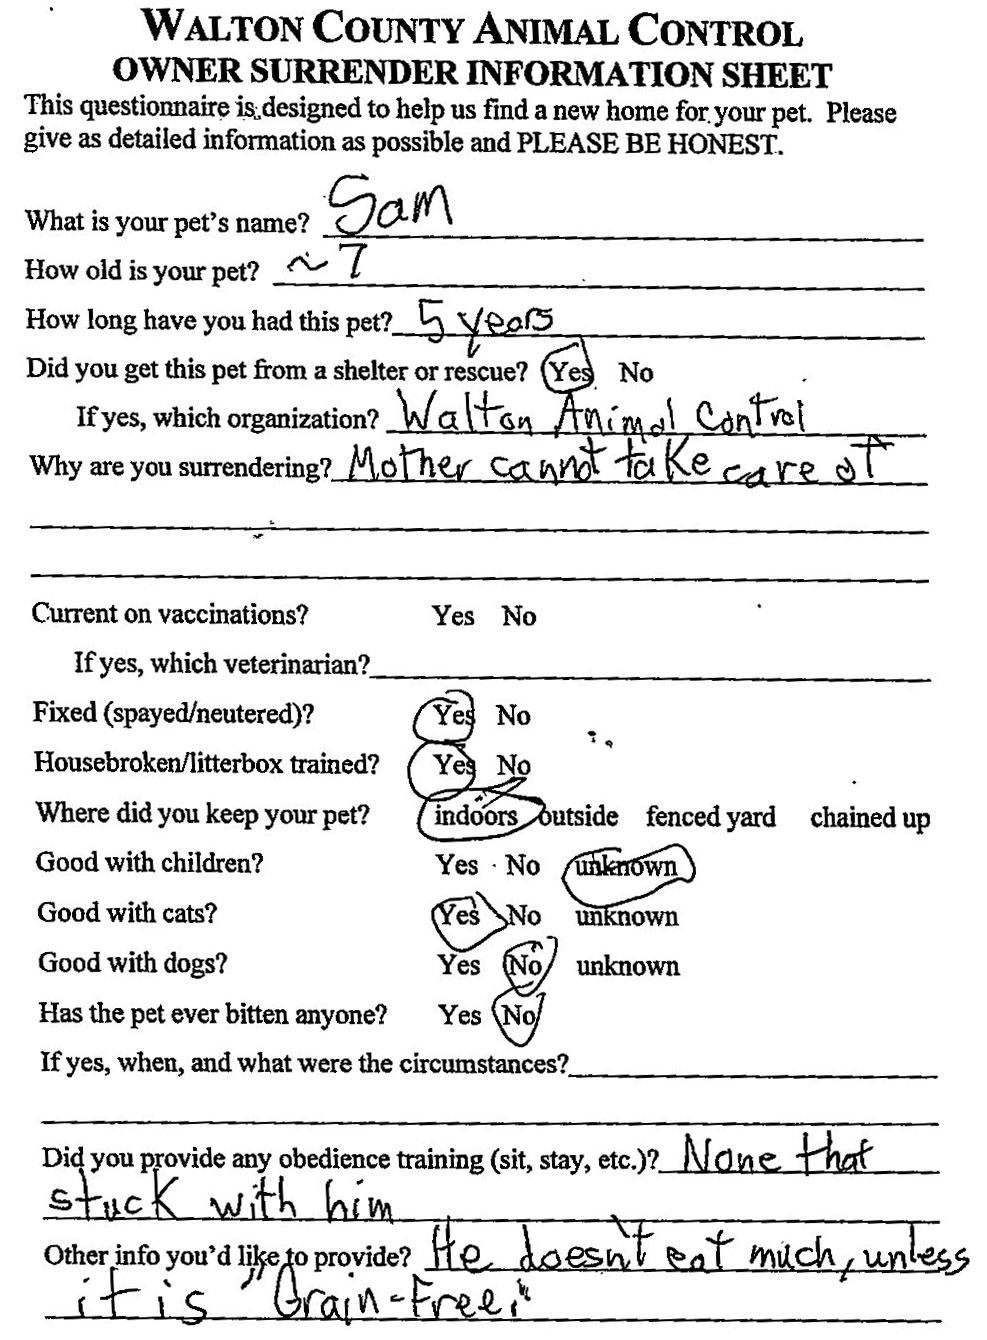 WALTON COUNTY ANIMAL CONTROL
OWNER SURRENDER INFORMATION SHEET
This questionnaire is designed to help us find a new home for your pet. Please
give as detailed information as possible and PLEASE BE HONEST.
What is your pet's name? Sam
How old is your pet? ~ 7
How long have you had this pet? 5 years
Did you get this pet from a shelter or rescue? Yes No
If yes, which organization? Walton Animal Control
Why are you surrendering? Mother cannot take care of
Current on vaccinations? Yes No
If yes, which veterinarian?
Fixed (spayed/neutered)? Yes No
Housebroken/litterbox trained? Yes No
Where did you keep your pet? indoors outside fenced yard chained up
Good with children? Yes No unknown
Good with cats? Yes No unknown
Good with dogs? Yes No unknown
Has the pet ever bitten anyone? Yes No
If yes, when, and what were the circumstances?
Did you provide any obedience training (sit, stay, etc.)? None that
stuck with him
Other info you'd like to provide? He doesn't eat much, unless
it is "Grain-Free."